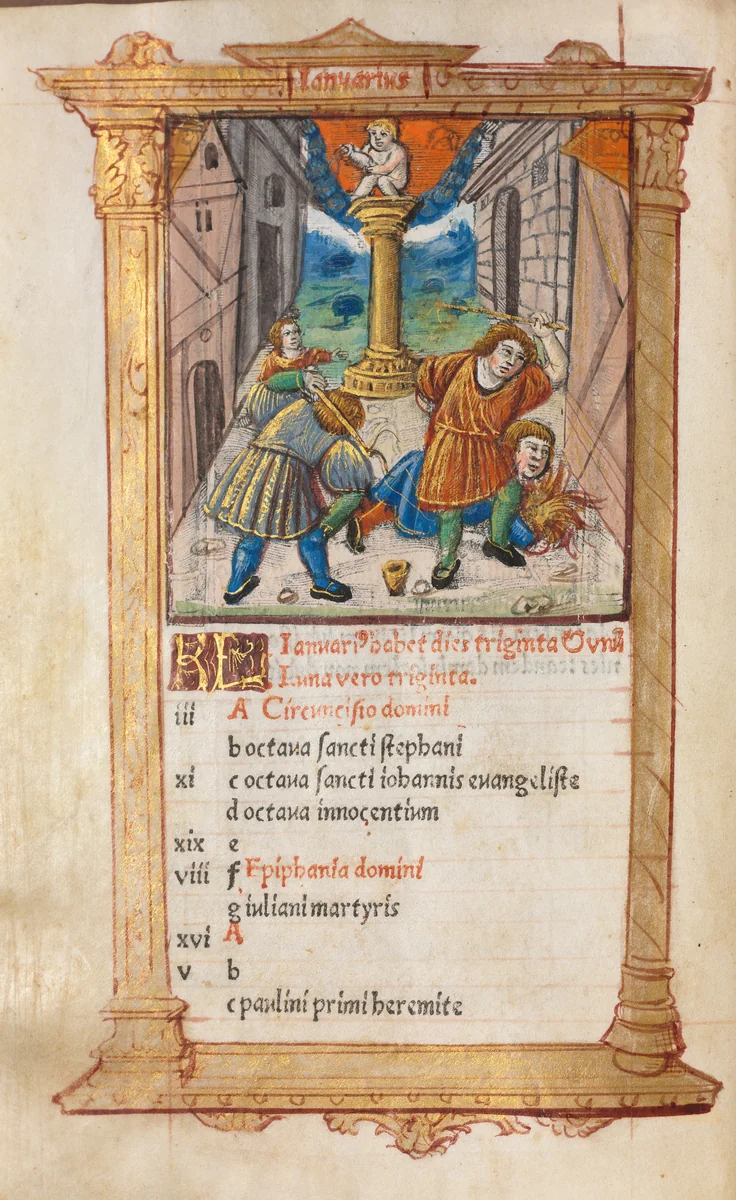 Ianuarius
KL Ianuariꝰ habet dies triginta Ovnū
Luna vero triginta.
iii A Circuncisio domini
b octaua sancti stephani
xi c octaua sancti iohannis euangeliste
d octaua innocentium
xix e
viii f Epiphania domini
g iuliani martyris
xvi A
v b
c paulini primi heremite